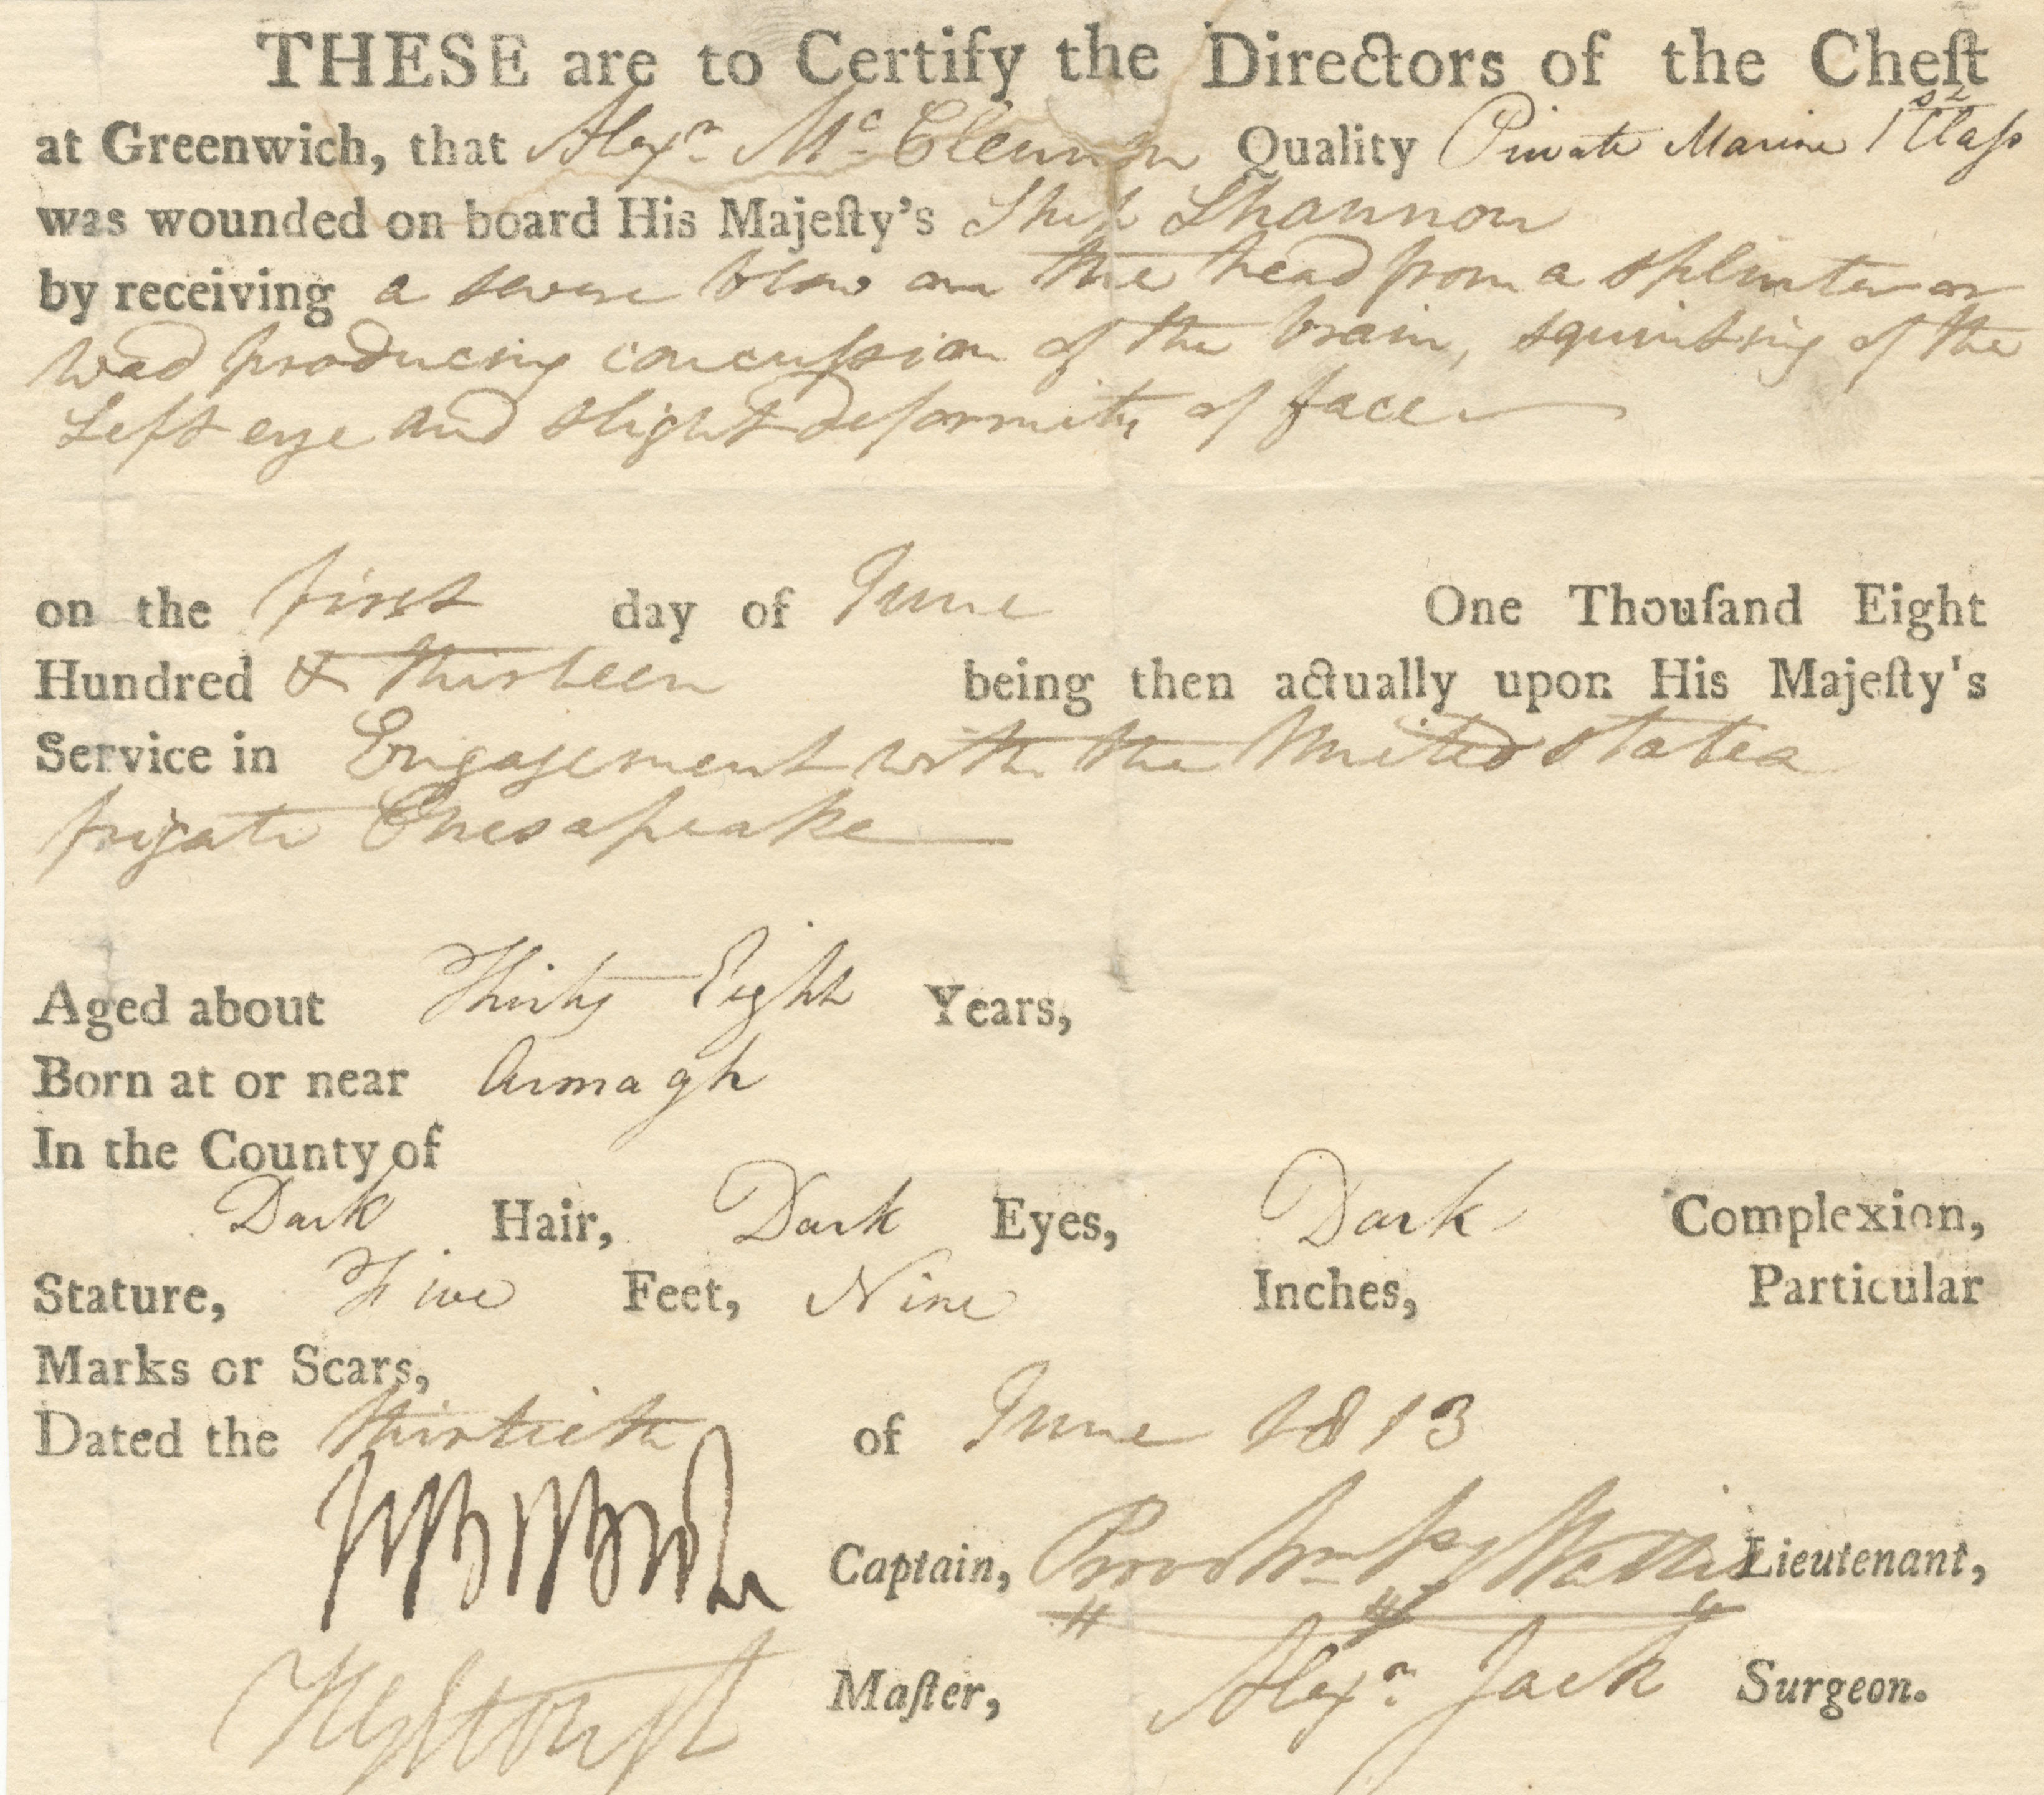 THESE are to Certify the Directors of the Cheſt
at Greenwich, that Alexr. Mc. Clennan Quality Private Marine 1st Claſs
was wounded on board His Majeſty's Ship Shannon
by receiving a severe blow on the head from a splinter or
wad producing concuſsion of the brain, squinting of the
Left eye and slight deformity of face
on the first day of June One Thouſand Eight
Hundred & thirteen being then actually upon His Majeſty's
Service in Engagement with the United States
frigate Chesapeake
Aged about Thirty Eight Years,
Born at or near Armagh
In the County of
Dark Hair, Dark Eyes, Dark Complexion,
Stature, Five Feet, Nine Inches, Particular
Marks or Scars,
Dated the thirtieth of June 1813
Captain, Provo Wm. Pry Wallis Lieutenant,
Maſter, Alexr. Jack Surgeon.